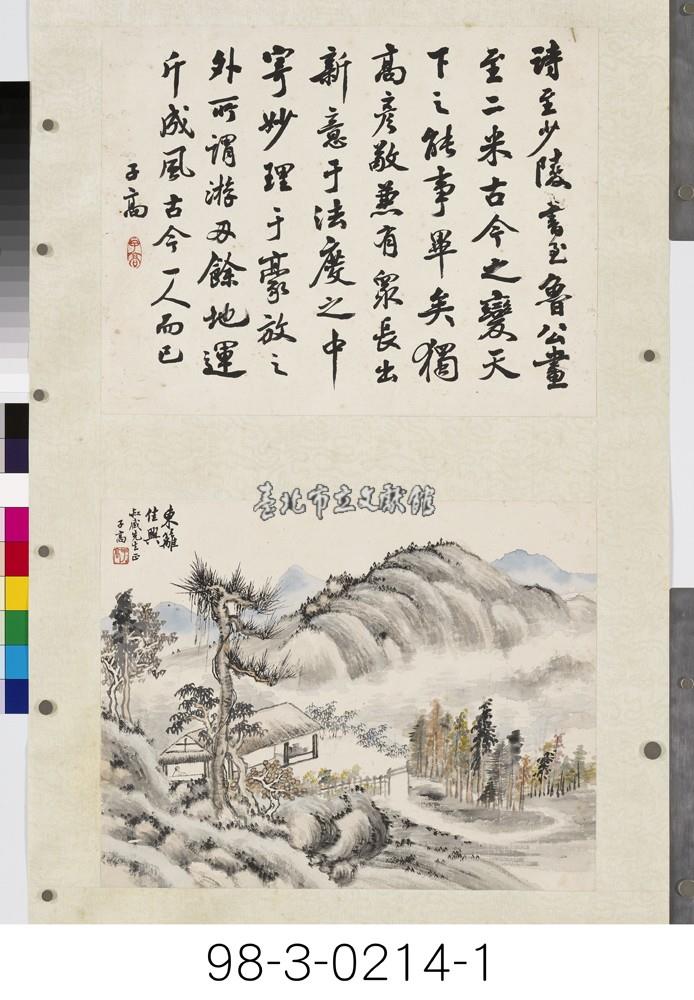 詩至少陵書至魯公畫
至二米古今之變天
下之能事畢矣獨
高彥敬兼有眾長出
新意于法度之中
寄妙理于豪放之
外所謂游刃餘地運
斤成風古今一人而已
子高
臺北市立文獻館
東籬
佳興
叔威先生正
子高
98-3-0214-1